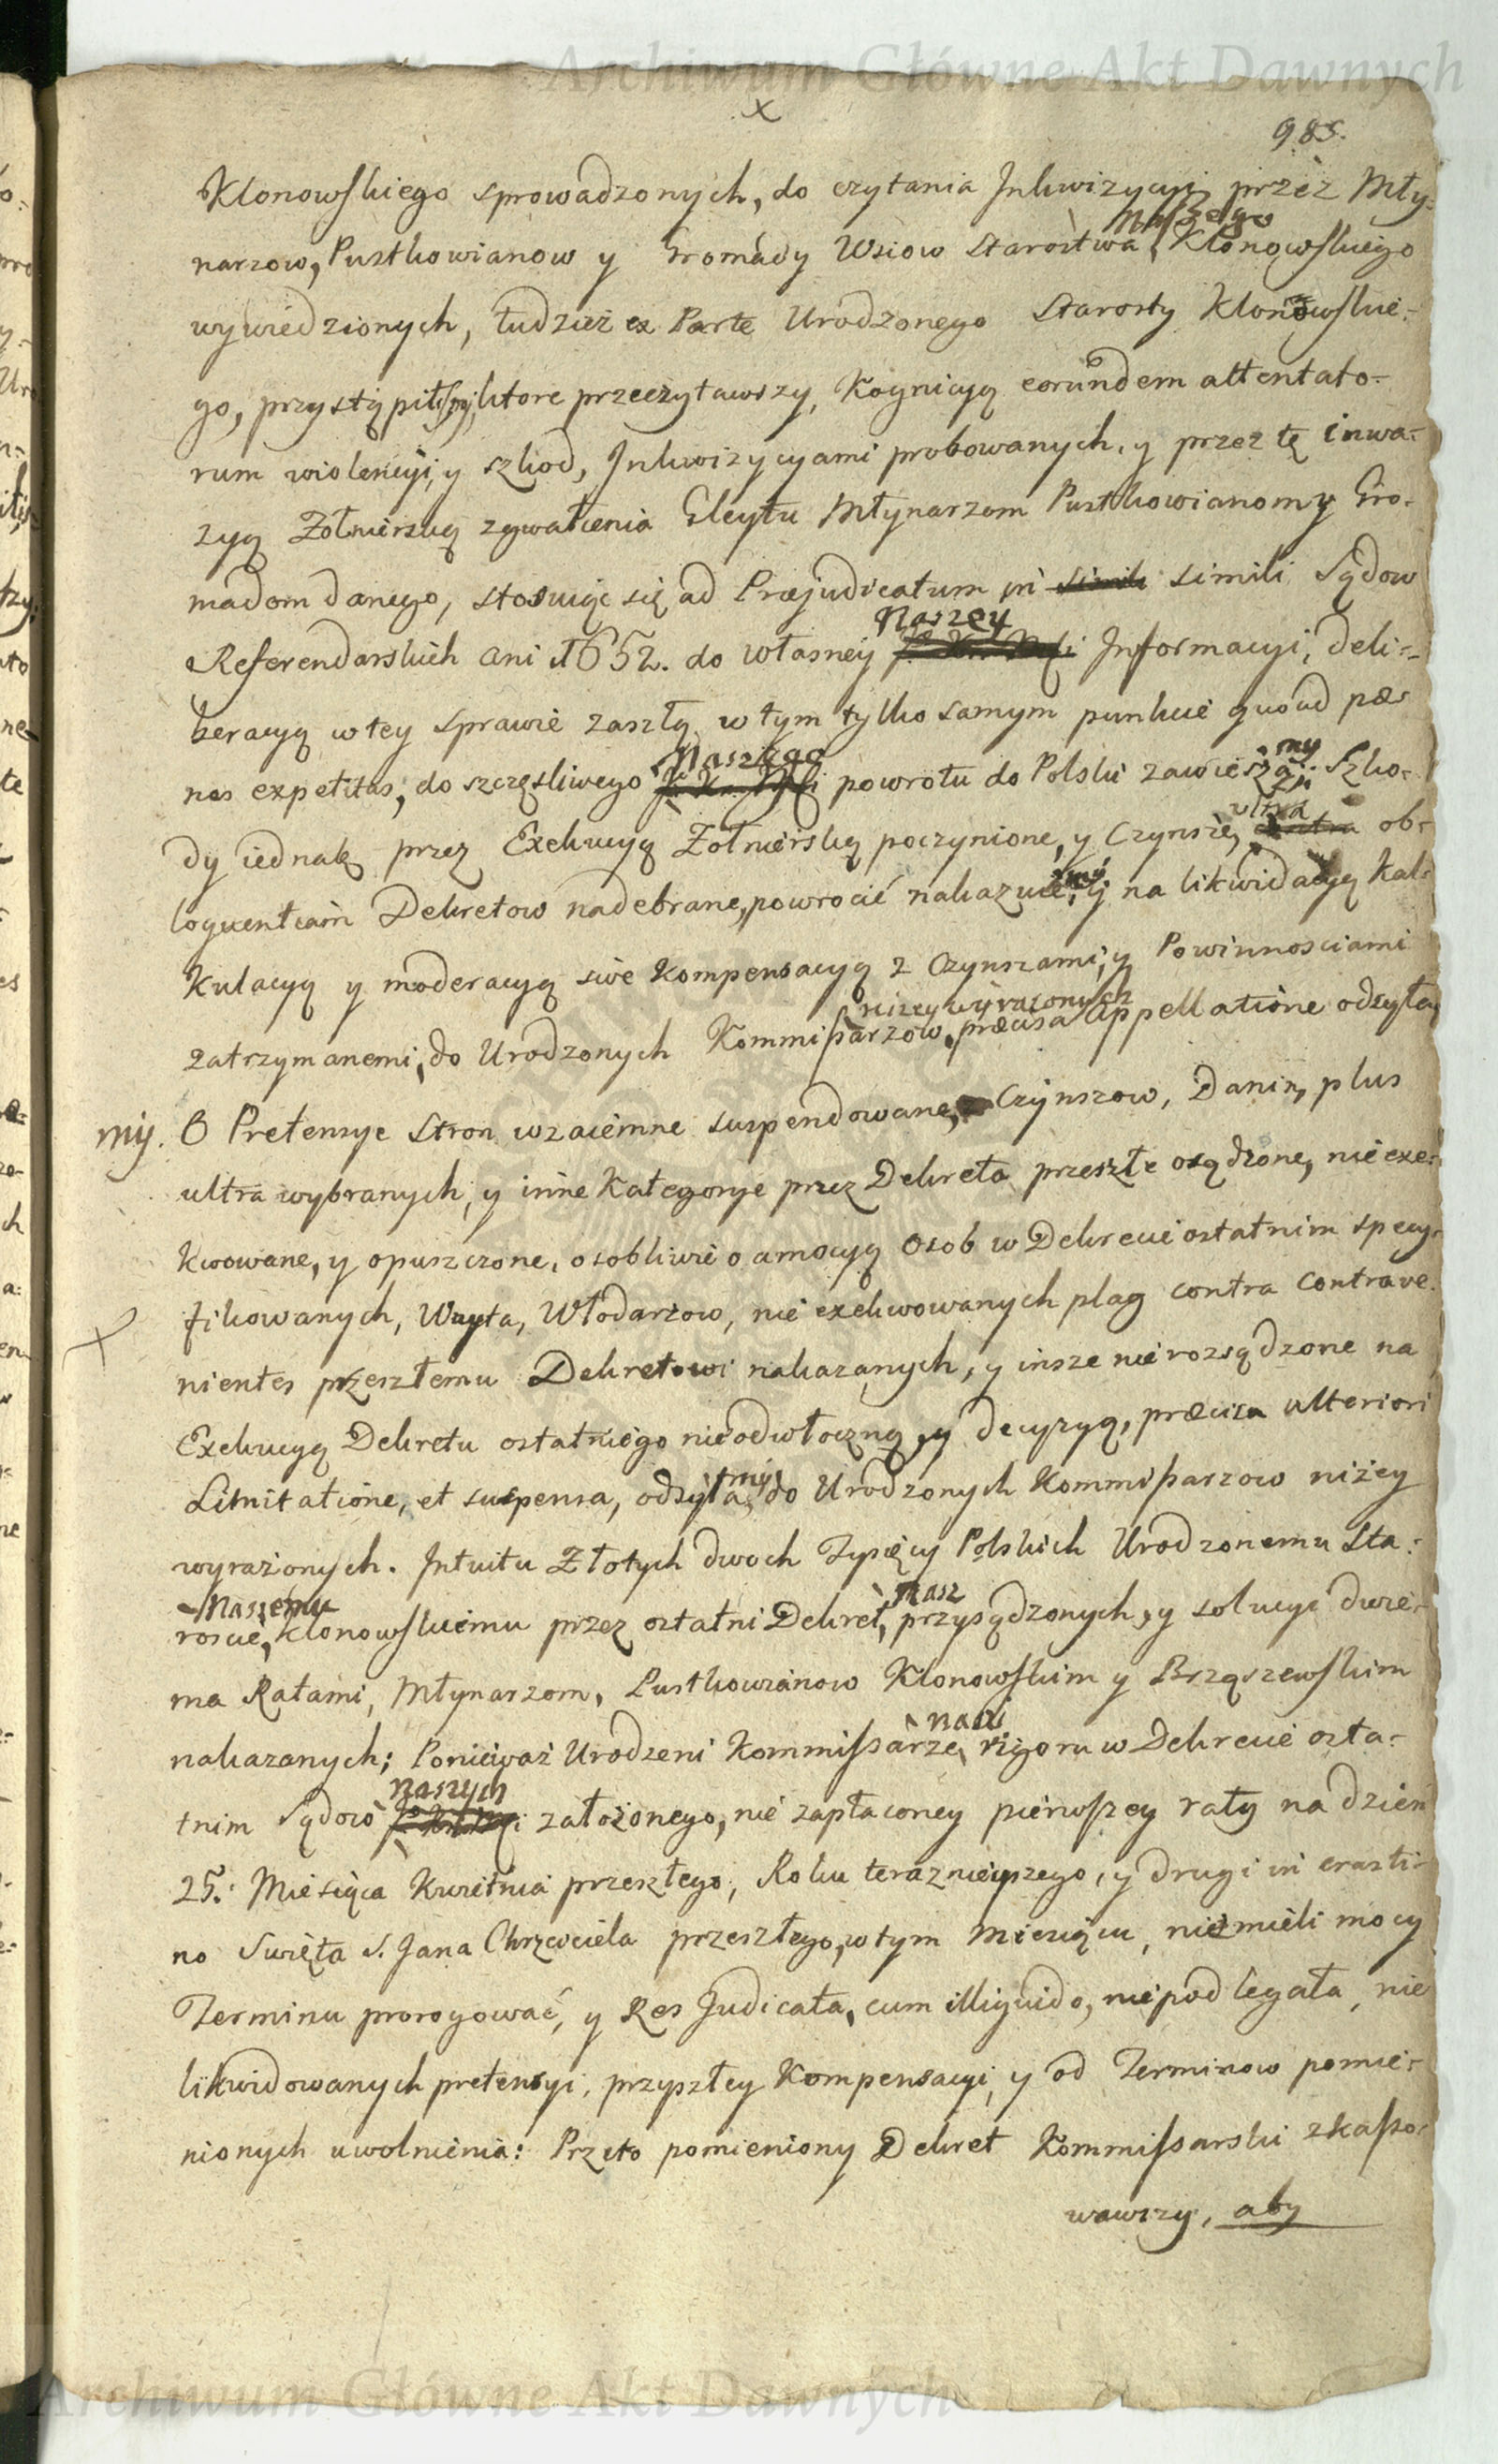 Archiwum Główne Akt Dawnych
x
985.
Klonowskiego sprowadzonych, do czytania Inkwizycyi przez Mły-
Naszego
narzow, Pustkowianow y Gromady Wsiow Starostwa Klonowskiego
wywiedzionych, tudzież ex Parte Urodzonego Starosty Klonowskie-
go, przystąpiliśmy, ktore przeczytawszy, Kognicyą eorundem attentato-
rum wiolencyi, y szkod, Inkwizycyami probowanych, y przez tę inwa-
zyą Zołnierską zgwałcenia Gleytu Młynarzom Pustkowianom y Gro-
madom danego, stosuiąc się ad Præjudicatum in simili simili Sądow
Naszey
Referendarskich ani 1652. do własney Informacyi, deli-
beracyą w tey sprawie zaszłą w tym tylko samym punkcie quoad pœ-
Naszego my
nas expetitas, do szczęśliwego powrotu do Polski zawiesza. Szko-
ultra
dy iednak przez Exekucyą Zołnierską poczynione, y Czynsze, ob-
my
loquentiam Dekretow nadebrane, powrocić nakazuie, y na likwidacyą Kal-
kulacyą y moderacyą siwe Kompensacyą z Czynszami, y Powinnosciami
niżey wyrażonych
zatrzymanemi, do Urodzonych Kommissarzow, præcisa Appellatione odsyła
my. O Pretensye Stron wzaiemne suspendowane, Czynszow, Danin, plus
ultra wybranych, y inne Kategorye przez Dekreta przeszłe osądzone, nie exe-
kwowane, y opuszczone, osobliwie o amocyą Osob w Dekrecie ostatnim specy-
fikowanych, Woyta, Włodarzow, nie exekwowanych plag contra contrave-
x
nientes przeszłemu Dekretowi nakazanych, y insze nierozsądzone na
Exekucyą Dekretu ostatniego nieodwłoczną, y decyzyą, præcisa ulteriori
my
Limitatione, et suspensa, odsyła do Urodzonych Kommissarzow niżey
wyrażonych. Intuitu Złotych dwoch Tysięcy Polskich Urodzonemu Sta-
Naszemu Nasz
roscie, Klonowskiemu przez ostatni Dekret, przysądzonych, y solucyi dwie-
ma Ratami, Młynarzom, Pustkowianow Klonowskim y Brząszewskim
nasi
nakazanych; Ponieważ Urodzeni Kommissarze, rigoru w Dekrecie osta-
naszych
tnim Sądow założonego, nie zapłaconey pierwszey raty na dzień
25. Miesiąca Kwietnia przeszłego, Roku teraznieyszego, y drugi in crasti-
no Swięta S. Jana Chrzciciela przeszłego, w tym Miesiącu, nie mieli mocy
Terminu prorogować, y Res Judicata, cum illiquido, niepodlegała, nie
likwidowanych pretensyi, przyszłey Kompensacyi, y od Terminow pomie-
nionych uwolnienia: Przeto pomieniony Dekret Kommissarski zkasso-
wawszy, aby
Archiwum Główne Akt Dawnych